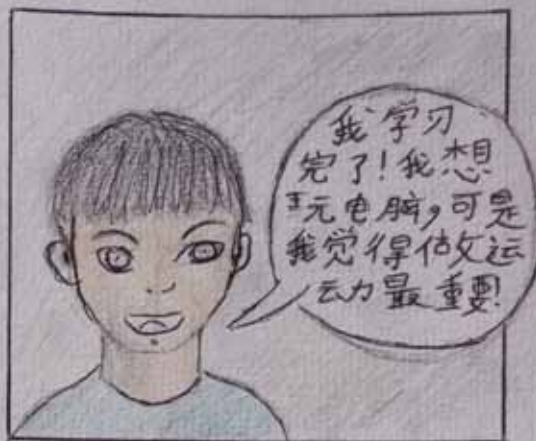 我学习
完了！我想
玩电脑，可是
我觉得做运
动最重要！